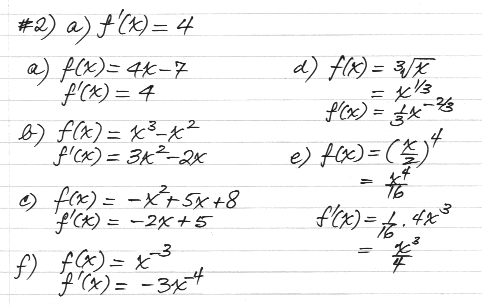 #2) a) f'(x) = 4
a) f(x) = 4x-7
f'(x) = 4
b) f(x) = x³-x²
f'(x) = 3x²-2x
c) f(x) = -x²+5x+8
f'(x) = -2x+5
f) f(x) = x⁻³
f'(x) = -3x⁻⁴
d) f(x) = ³√x
= x^1/3
f'(x) = 1/3 x^-2/3
e) f(x) = (x/2)⁴
= x⁴/16
f'(x) = 1/16 . 4x³
= x³/4